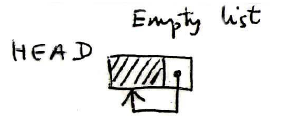 Empty list
HEAD